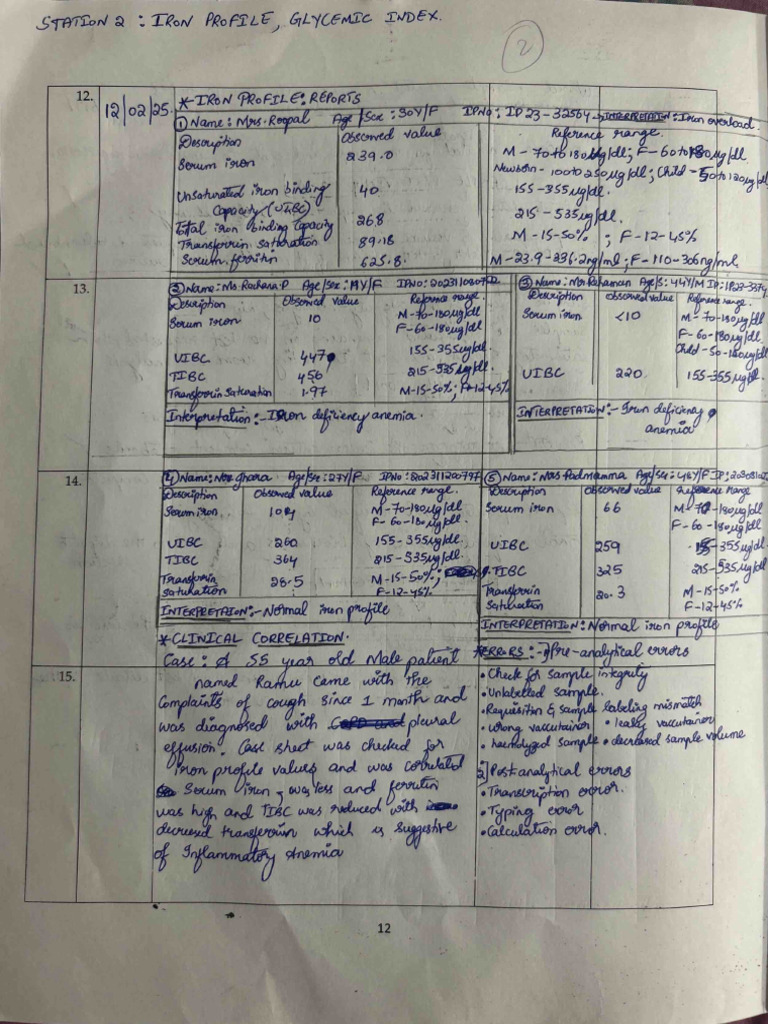 STATION 2 : IRON PROFILE, GLYCEMIC INDEX.
2
12.
12/02/25.
* IRON PROFILE: REPORTS
① Name: Mrs. Roopal Age/Sex: 30Y/F IPNO: IP23-32564 → INTERPRETATION: Iron overload.
Description Observed value Reference range.
Serum iron 239.0 M - 70 to 180 µg/dl; F - 60 to 180 µg/dl
Newborn - 100 to 250 µg/dl; Child - 50 to 120 µg/dl
Unsaturated iron binding 40 155-355 µg/dl.
Capacity (UIBC)
Total iron binding capacity 268 215-535 µg/dl.
Transferrin saturation 89.18 M-15-50% ; F-12-45%
Serum ferritin 625.8 M-23.9-336.2ng/ml; F-110-306ng/ml.
13.
② Name: Ms. Rachana.P Age/Sex: 19Y/F IPNO:
Description Observed value Reference range.
Serum iron 10 M-70-180µg/dl
F-60-180µg/dl
UIBC 447 155-355µg/dl.
TIBC 456 215-535µg/dl.
Transferrin saturation 1.97 M-15-50%; F-12-45%
Interpretation:- Iron deficiency anemia.
③ Name: Mr. Rahaman Age/S: 44Y/M IP:
Description observed value Reference range.
Serum iron <10 M-70-180µg/dl
F-60-180µg/dl
Child-50-120µg/dl
UIBC 220 155-355µg/dl.
INTERPRETATION:- Iron deficiency anemia
14.
④ Name: Age/Sex: 27Y/F IPNO: 202311200797
Description Observed value Reference range.
Serum iron 104 M-70-180µg/dl
F-60-180µg/dl.
UIBC 260 155-355µg/dl.
TIBC 364 215-535µg/dl.
Transferrin 28.5 M-15-50%;
saturation F-12-45%
INTERPRETAION:- Normal iron profile
⑤ Name: Mrs Padmamma Age/Sex: 48Y/F IP:
Description Observed value Reference range
Serum iron 66 M-70-180µg/dl
F-60-180µg/dl
UIBC 259 155-355µg/dl
TIBC 325 215-535µg/dl
Transferrin 20.3 M-15-50%
Saturation F-12-45%
INTERPRETATION: Normal iron profile
* CLINICAL CORRELATION.
15.
Case: A 55 year old Male patient
named Ramu came with the
complaints of cough since 1 month and
was diagnosed with plural
effusion. Case sheet was checked for
iron profile values and was correlated
Serum iron was less and ferritin
was high and TIBC was reduced with
decreased transferrin which is suggestive
of Inflammatory Anemia
* ERRORS:- 1] Pre-analytical errors
• Check for sample integrity
• Unlabelled sample.
• Requisition & sample labeling mismatch
• wrong vaccutainer • leaky vaccutainer
• haemolyzed sample • decreased sample volume
2] Post analytical errors
• Transcription error.
• Typing error
• Calculation error.
12